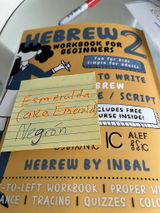 HEBREW 2
WORKBOOK FOR
BEGINNERS
Fun for kids
Simple for adults
TO WRITE
E / SCRIPT
Esmeralda
(aka Emerald
Negron
CLUDES FREE
URSE INSIDE!
IC ALEF
HEBREW BY INBAL
-TO-LEFT WORKBOOK | PROPER W
ANCE | TRACING | QUIZZES | COLO